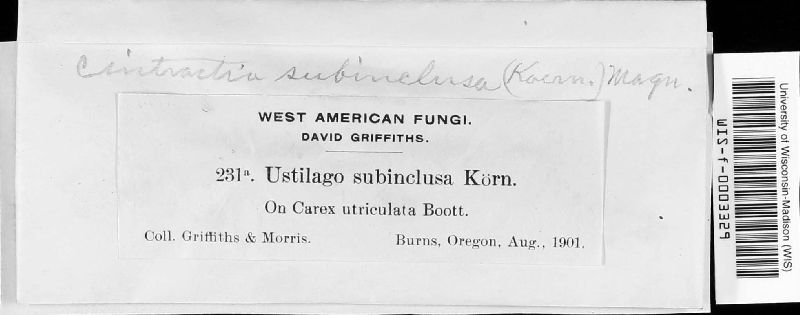 Cintractia subinclusa (Koern.) Magn.
WEST AMERICAN FUNGI.
DAVID GRIFFITHS.
231ª. Ustilago subinclusa Körn.
On Carex utriculata Boott.
Coll. Griffiths & Morris. Burns, Oregon, Aug., 1901.
University of Wisconsin-Madison (WIS)
WIS-f-0003329